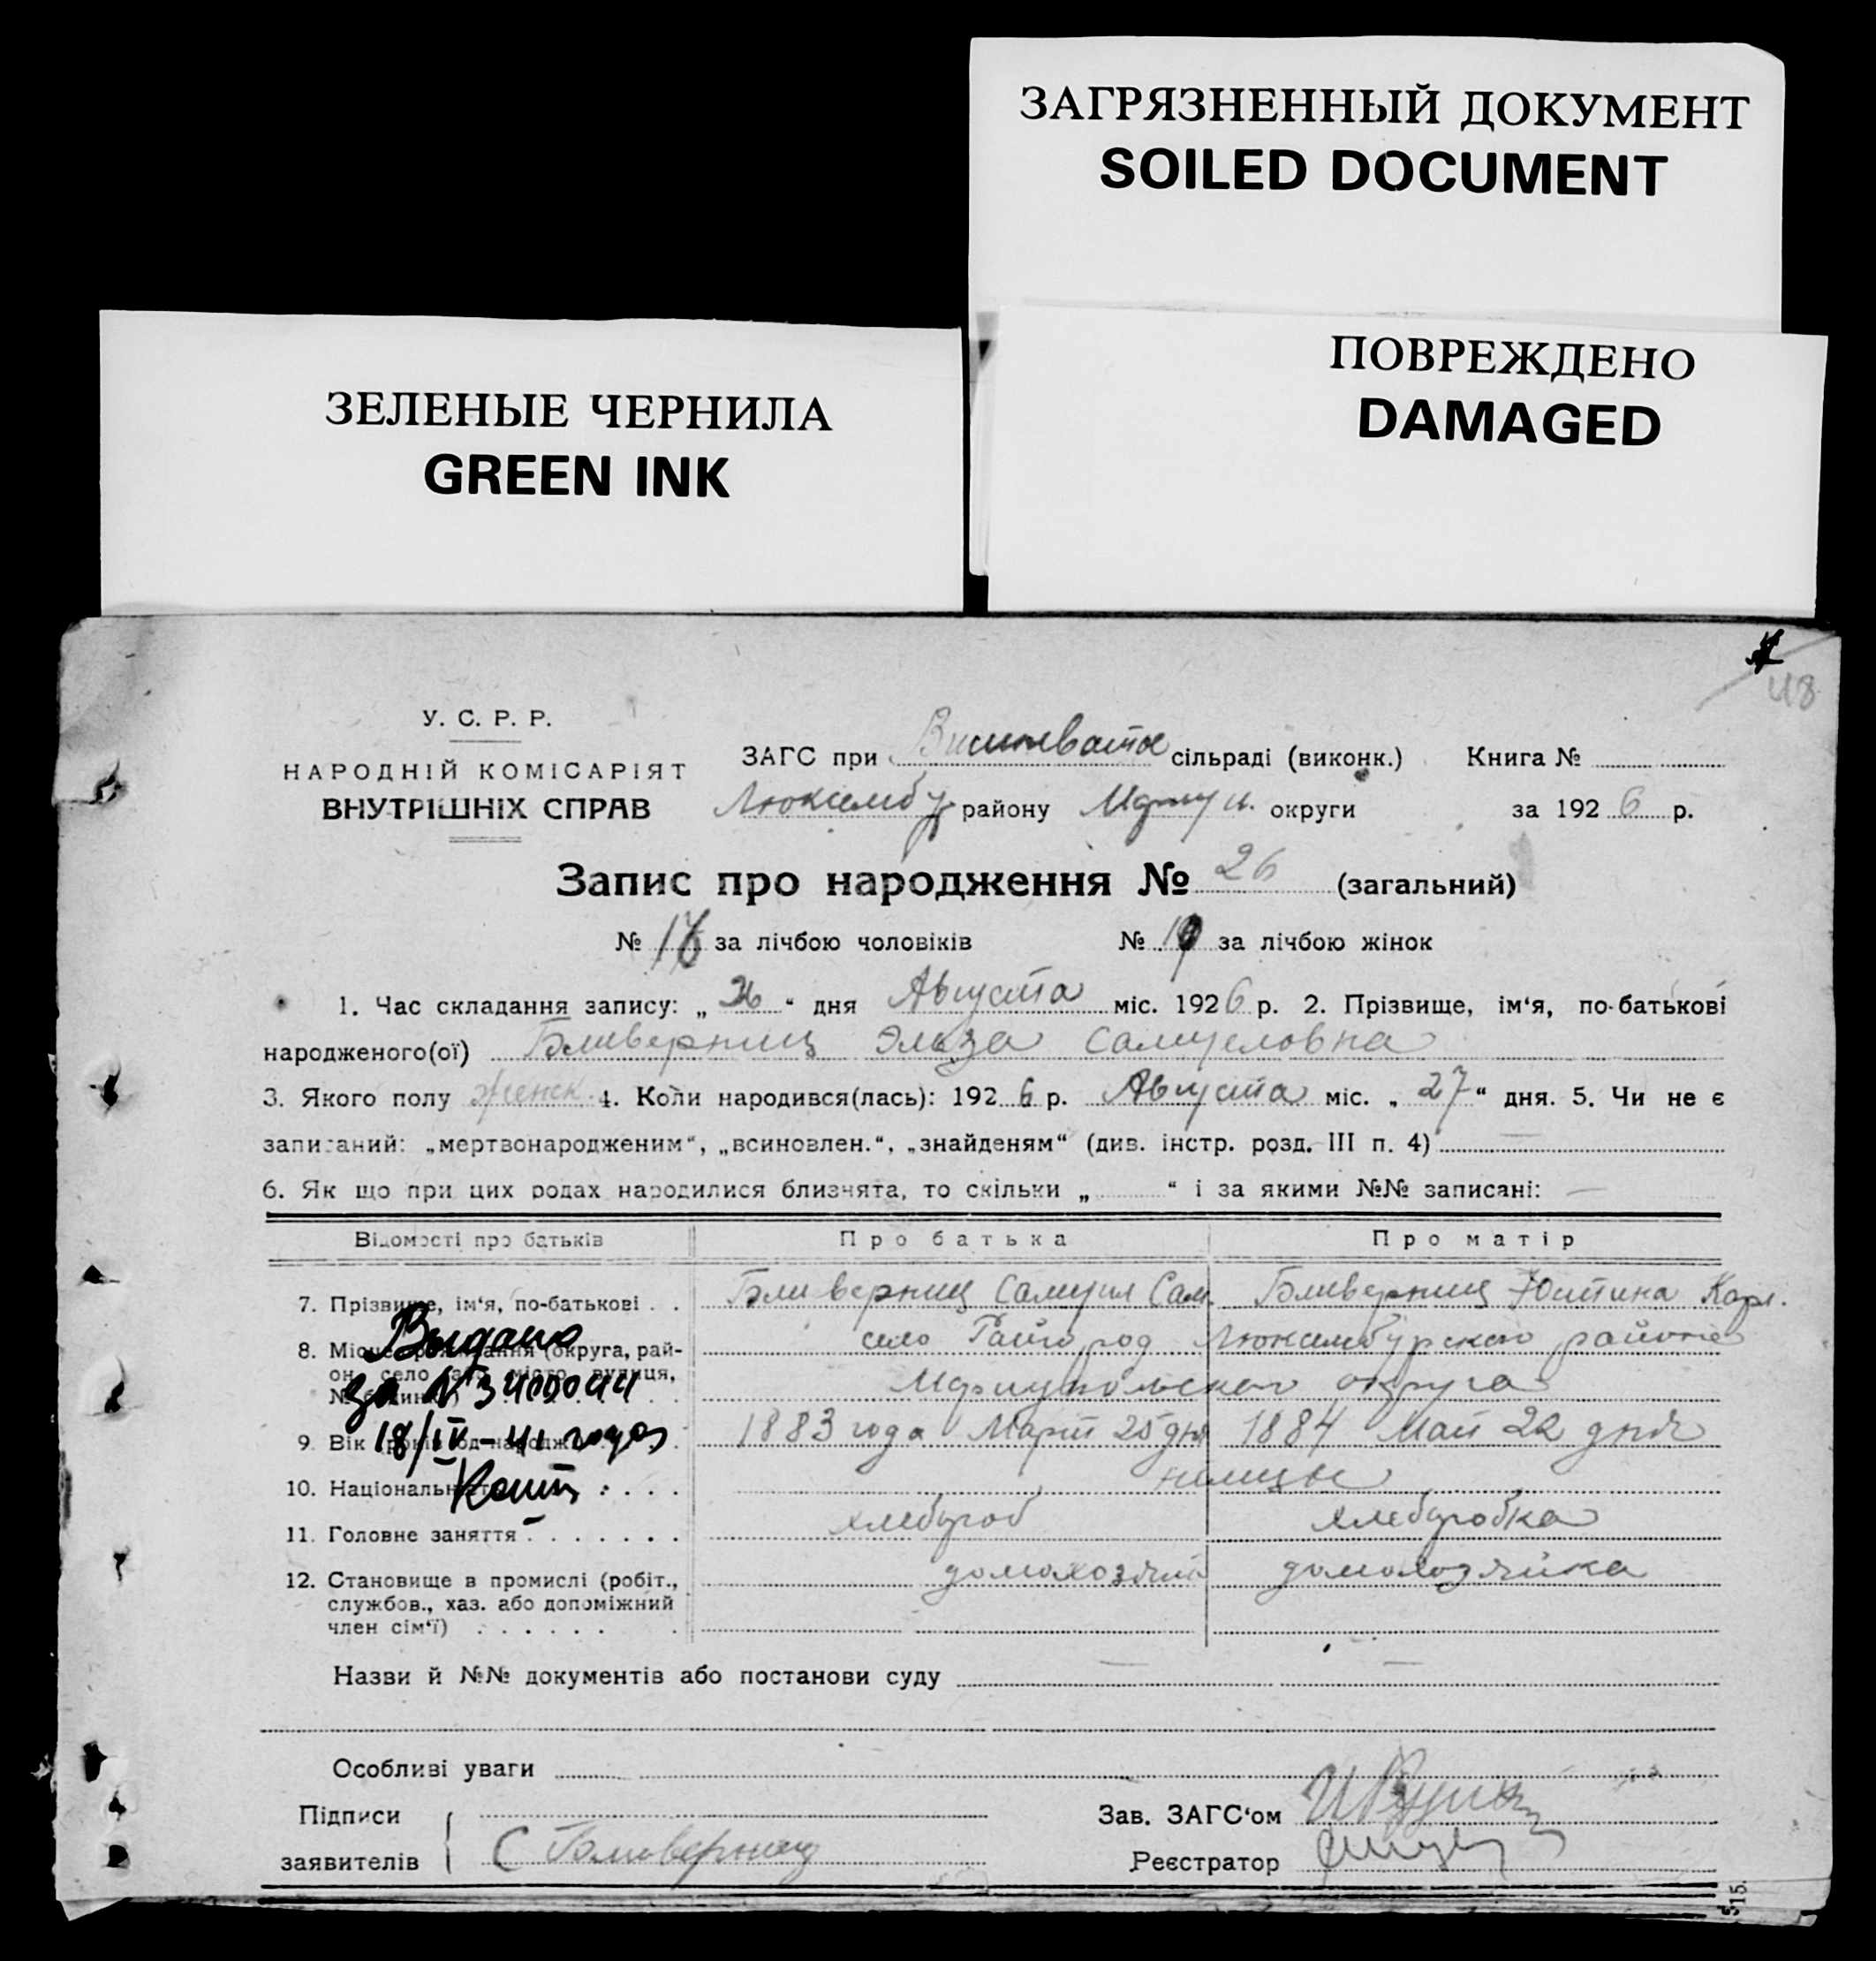 ЗАГРЯЗНЕННЫЙ ДОКУМЕНТ
SOILED DOCUMENT
ПОВРЕЖДЕНО
DAMAGED
ЗЕЛЕНЫЕ ЧЕРНИЛА
GREEN INK
48
У. С. Р. Р.
НАРОДНІЙ КОМІСАРІЯТ
ВНУТРІШНІХ СПРАВ
ЗАГС при сільраді (виконк.) Книга №
району округи за 1926 р.
Запис про народження № 26 (загальний)
№ за лічбою чоловіків № за лічбою жінок
1. Час складання запису: „ “ дня Августа міс. 1926 р. 2. Прізвище, ім‘я, по-батькові
народженого(ої) Бливерниц Эльза Самуеловна
3. Якого полу женск. 4. Коли народився(лась): 1926 р. Августа міс. „27“ дня. 5. Чи не є
записаний: „мертвонародженим“, „всиновлен.“, „знайденям“ (див. інстр. розд. III п. 4)
6. Як що при цих родах народилися близнята, то скільки „ “ і за якими №№ записані: —
Відомості про батьків Про батька Про матір
7. Прізвище, ім‘я, по-батькові . . Бливерниц Самуил Сам. Бливерниц Юстина Карл.
8. Місце проживання (округа, рай- село Райгород Люксембургского района
он, село або місто, вулиця,
№ будинку) Мариупольского округа
Выдано
за № 3400044
18/IV-41 года
9. Вік 1883 года Март 25 дня 1884 Май 22 дня
10. Національність . . . . немцы
11. Головне заняття . . . . . . . хлебороб хлеборобка
12. Становище в промислі (робіт., домохозяин домохозяйка
службов., хаз. або допоміжний
член сім‘ї) . . . . . .
Назви й №№ документів або постанови суду — —
Особливі уваги
Підписи Зав. ЗАГС‘ом
заявителів С Бливерниц Реєстратор